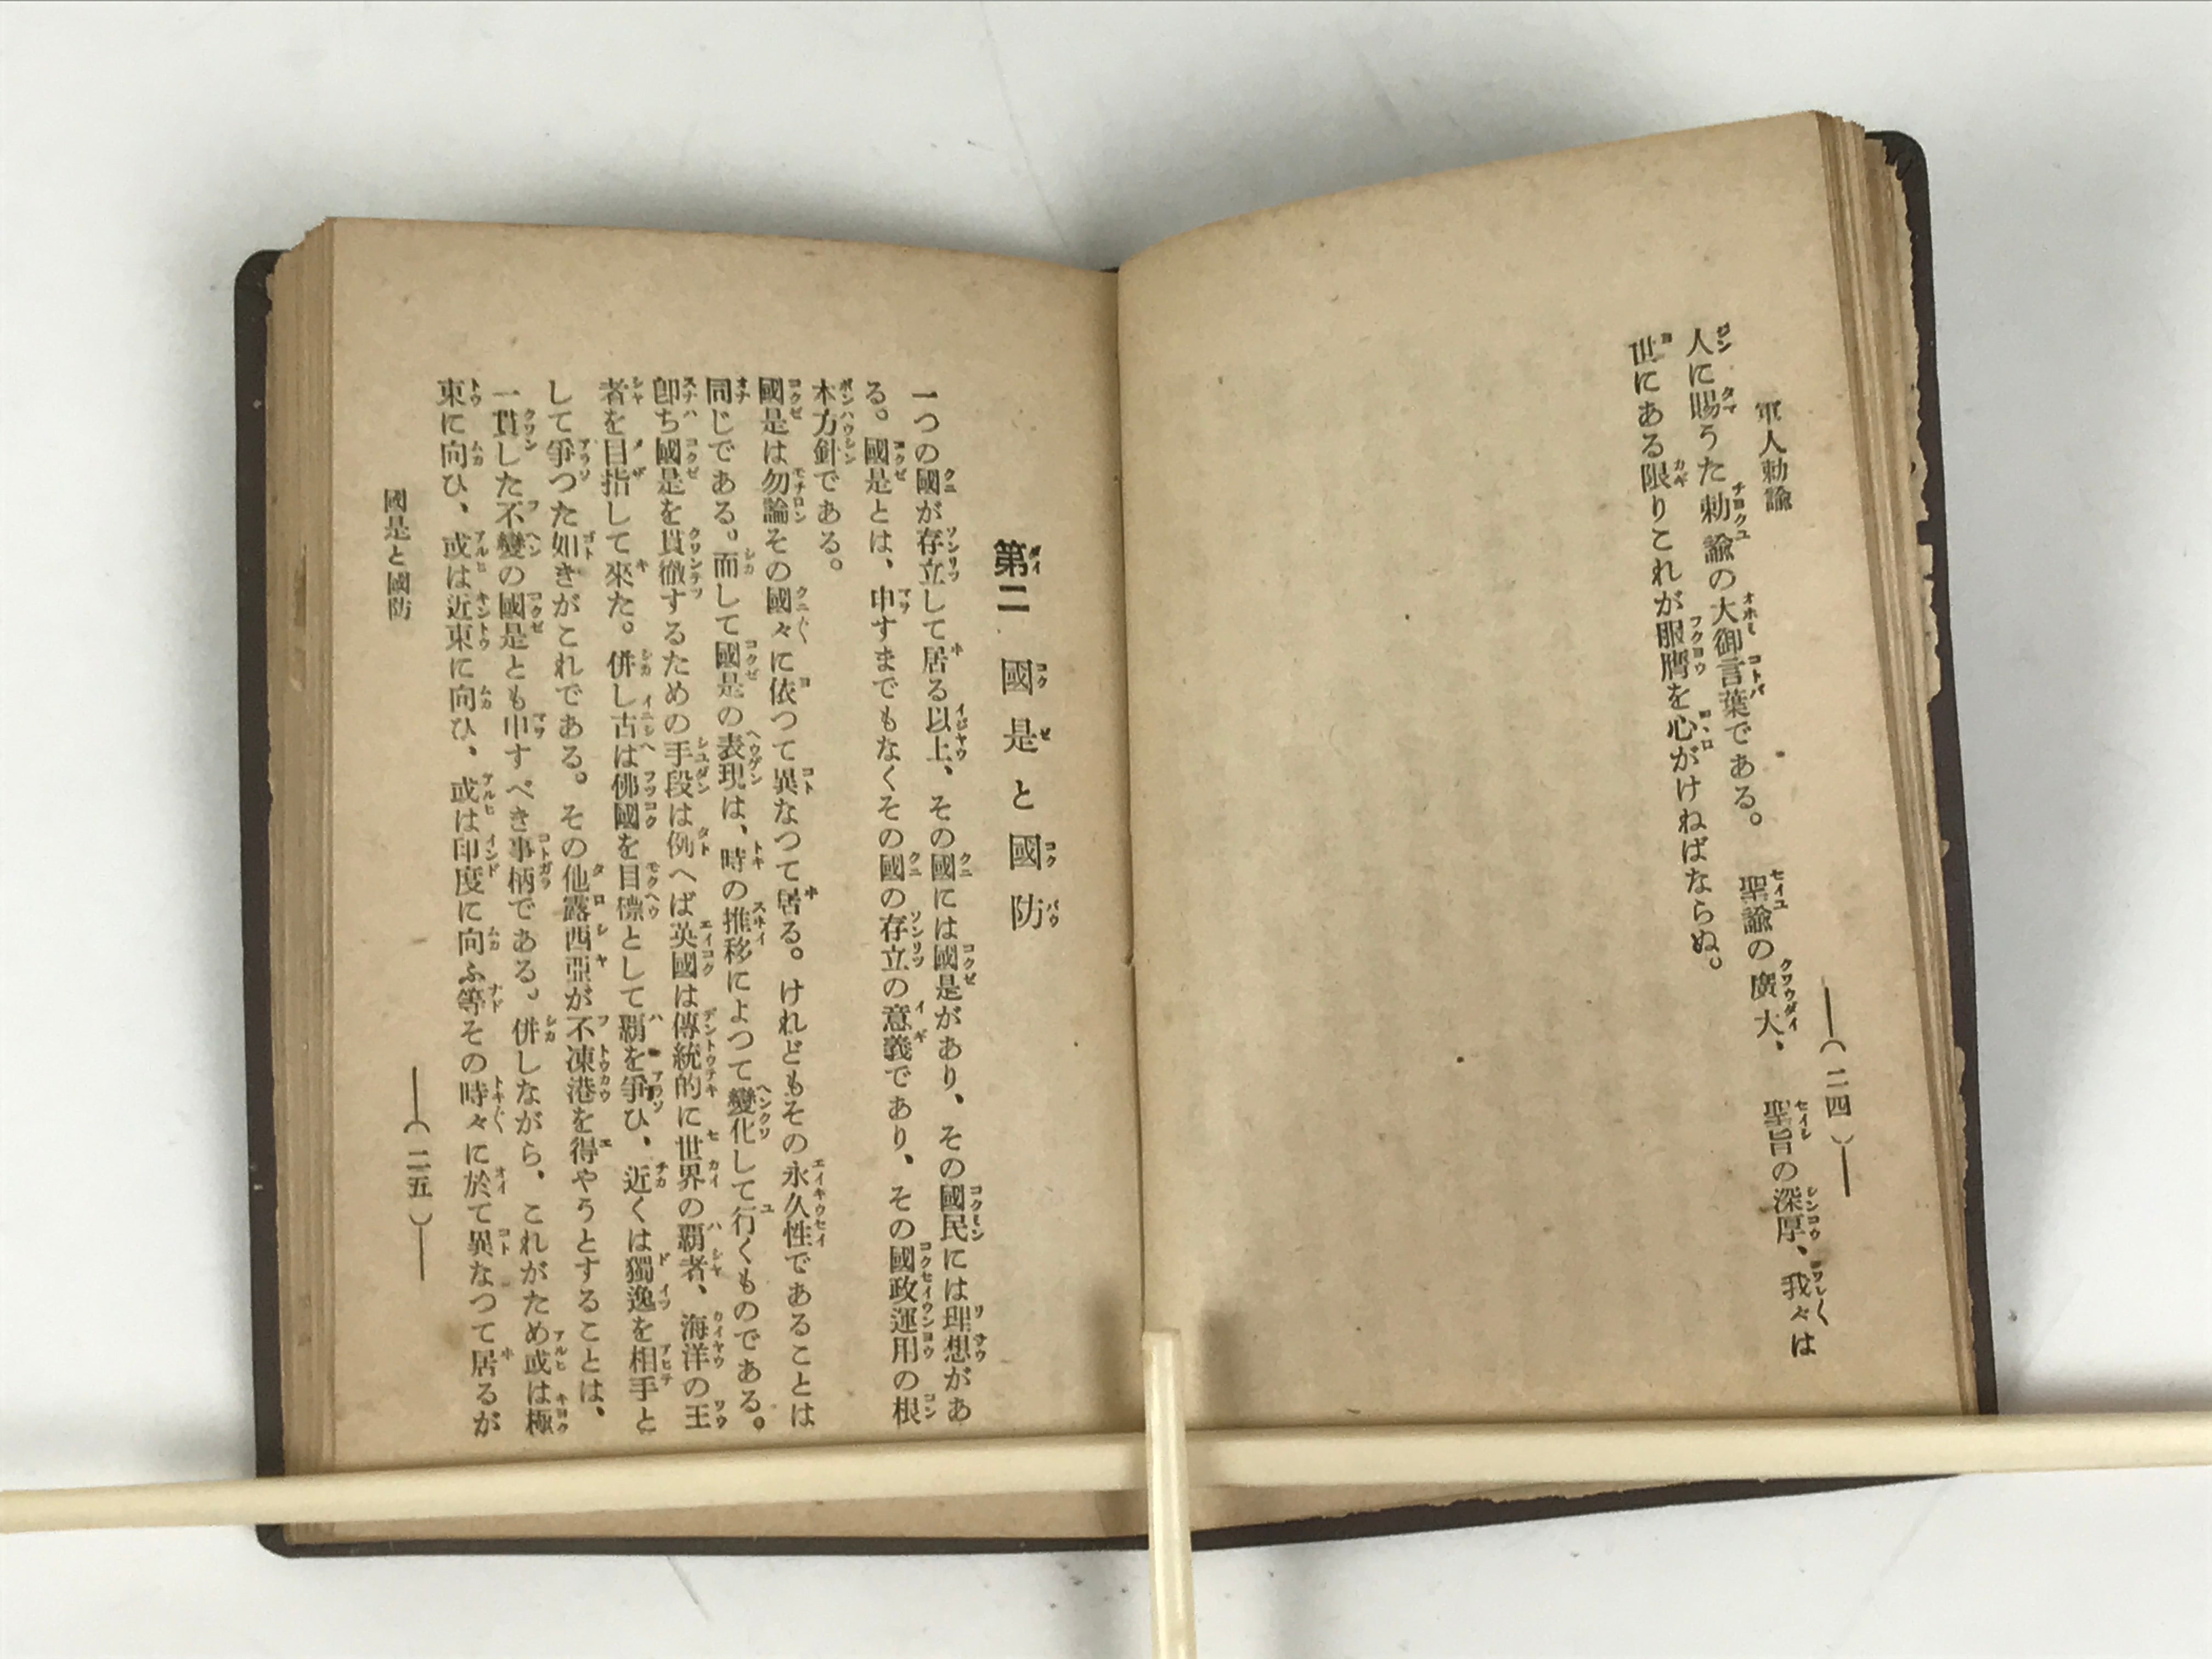 軍人勅諭
(二四)
人に賜うた勅諭の大御言葉である。聖諭の廣大、聖旨の深厚、我々は
世にある限りこれが服膺を心がけねばならぬ。
第二 國是と國防
一つの國が存立して居る以上、その國には國是があり、その國民には理想があ
る。國是とは、申すまでもなくその國の存立の意義であり、その國政運用の根
本方針である。
國是は勿論その國々に依つて異なつて居る。けれどもその永久性であることは
同じである。而して國是の表現は、時の推移によつて變化して行くものである。
卽ち國是を貫徹するための手段は例へば英國は傳統的に世界の覇者、海洋の王
者を目指して來た。併し古は佛國を目標として覇を爭ひ、近くは獨逸を相手と
して爭つた如きがこれである。その他露西亞が不凍港を得やうとすることは、
一貫した不變の國是とも申すべき事柄である。併しながら、これがため或は極
東に向ひ、或は近東に向ひ、或は印度に向ふ等その時々に於て異なつて居るが
國是と國防
(二五)